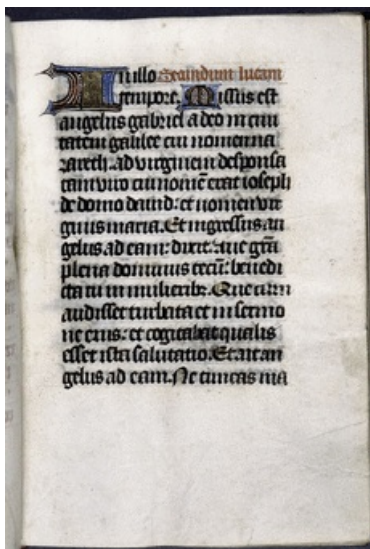 In illo Secundum lucam
tempore. Missus est
angelus gabriel a deo in ciui
tatem galilee cui nomen na
zareth. ad virginem desponsa
tam viro cui nomē erat ioseph
de domo dauid: et nomen vir
ginis maria. Et ingressus an
gelus ad eam: dixit. aue grā
plena dominus tecū: bened
cta tu in mulieribꝰ. Que cum
audisset turbata est in sermo
ne eius: et cogitabat qualis
esset ista salutatio. Et ait an
gelus ad eam. Ne timeas ma